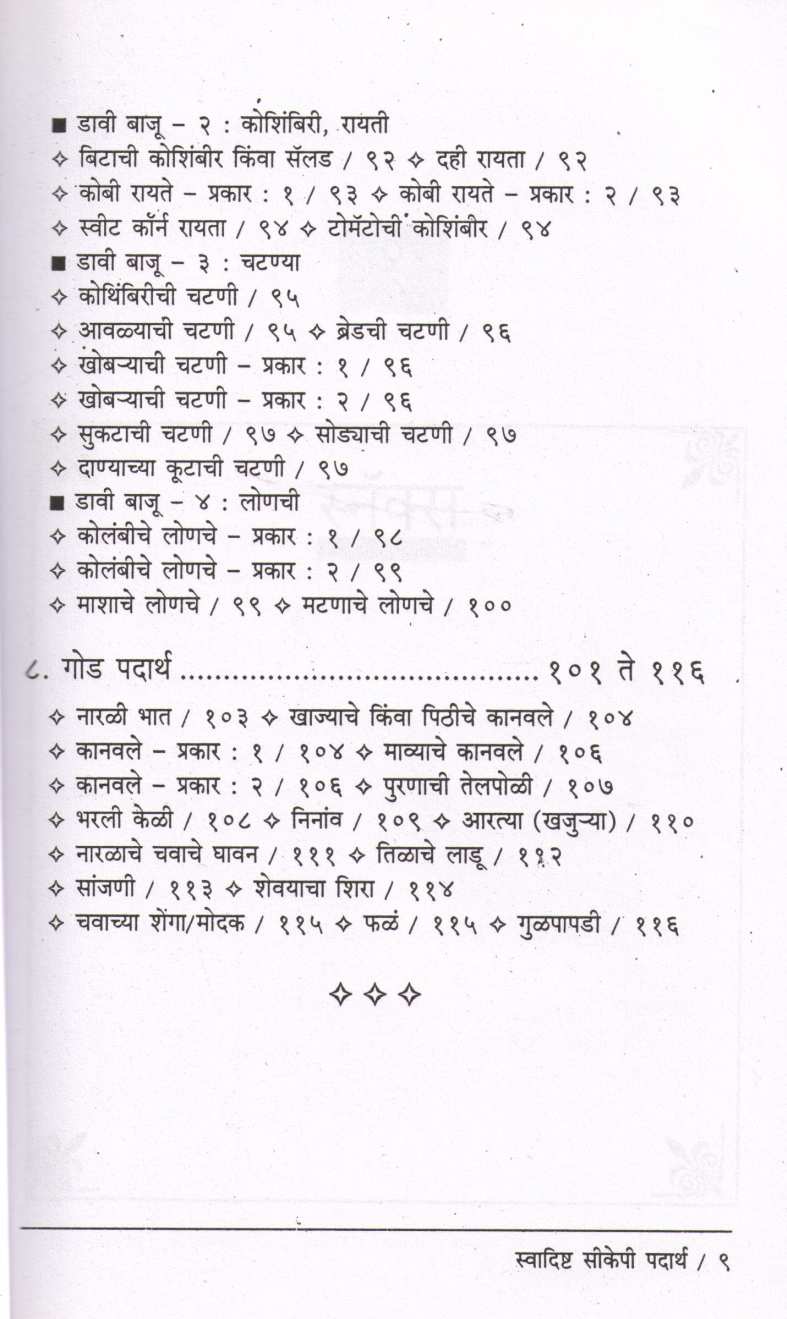 ■ डावी बाजू – २ : कोशिंबिरी, रायती
✧ बिटाची कोशिंबीर किंवा सॅलड / ९२ ✧ दही रायता / ९२
✧ कोबी रायते – प्रकार : १ / ९३ ✧ कोबी रायते – प्रकार : २ / ९३
✧ स्वीट कॉर्न रायता / ९४ ✧ टोमॅटोची कोशिंबीर / ९४
■ डावी बाजू – ३ : चटण्या
✧ कोथिंबिरीची चटणी / ९५
✧ आवळ्याची चटणी / ९५ ✧ ब्रेडची चटणी / ९६
✧ खोबऱ्याची चटणी – प्रकार : १ / ९६
✧ खोबऱ्याची चटणी – प्रकार : २ / ९६
✧ सुकटाची चटणी / ९७ ✧ सोड्याची चटणी / ९७
✧ दाण्याच्या कूटाची चटणी / ९७
■ डावी बाजू – ४ : लोणची
✧ कोलंबीचे लोणचे – प्रकार : १ / ९८
✧ कोलंबीचे लोणचे – प्रकार : २ / ९९
✧ माशाचे लोणचे / ९९ ✧ मटणाचे लोणचे / १००
८. गोड पदार्थ ........................................ १०१ ते ११६
✧ नारळी भात / १०३ ✧ खाज्याचे किंवा पिठीचे कानवले / १०४
✧ कानवले – प्रकार : १ / १०४ ✧ माव्याचे कानवले / १०६
✧ कानवले – प्रकार : २ / १०६ ✧ पुरणाची तेलपोळी / १०७
✧ भरली केळी / १०८ ✧ निनांव / १०९ ✧ आरत्या (खजुऱ्या) / ११०
✧ नारळाचे चवाचे घावन / १११ ✧ तिळाचे लाडू / ११२
✧ सांजणी / ११३ ✧ शेवयाचा शिरा / ११४
✧ चवाच्या शेंगा/मोदक / ११५ ✧ फळं / ११५ ✧ गुळपापडी / ११६
✧ ✧ ✧
स्वादिष्ट सीकेपी पदार्थ / ९